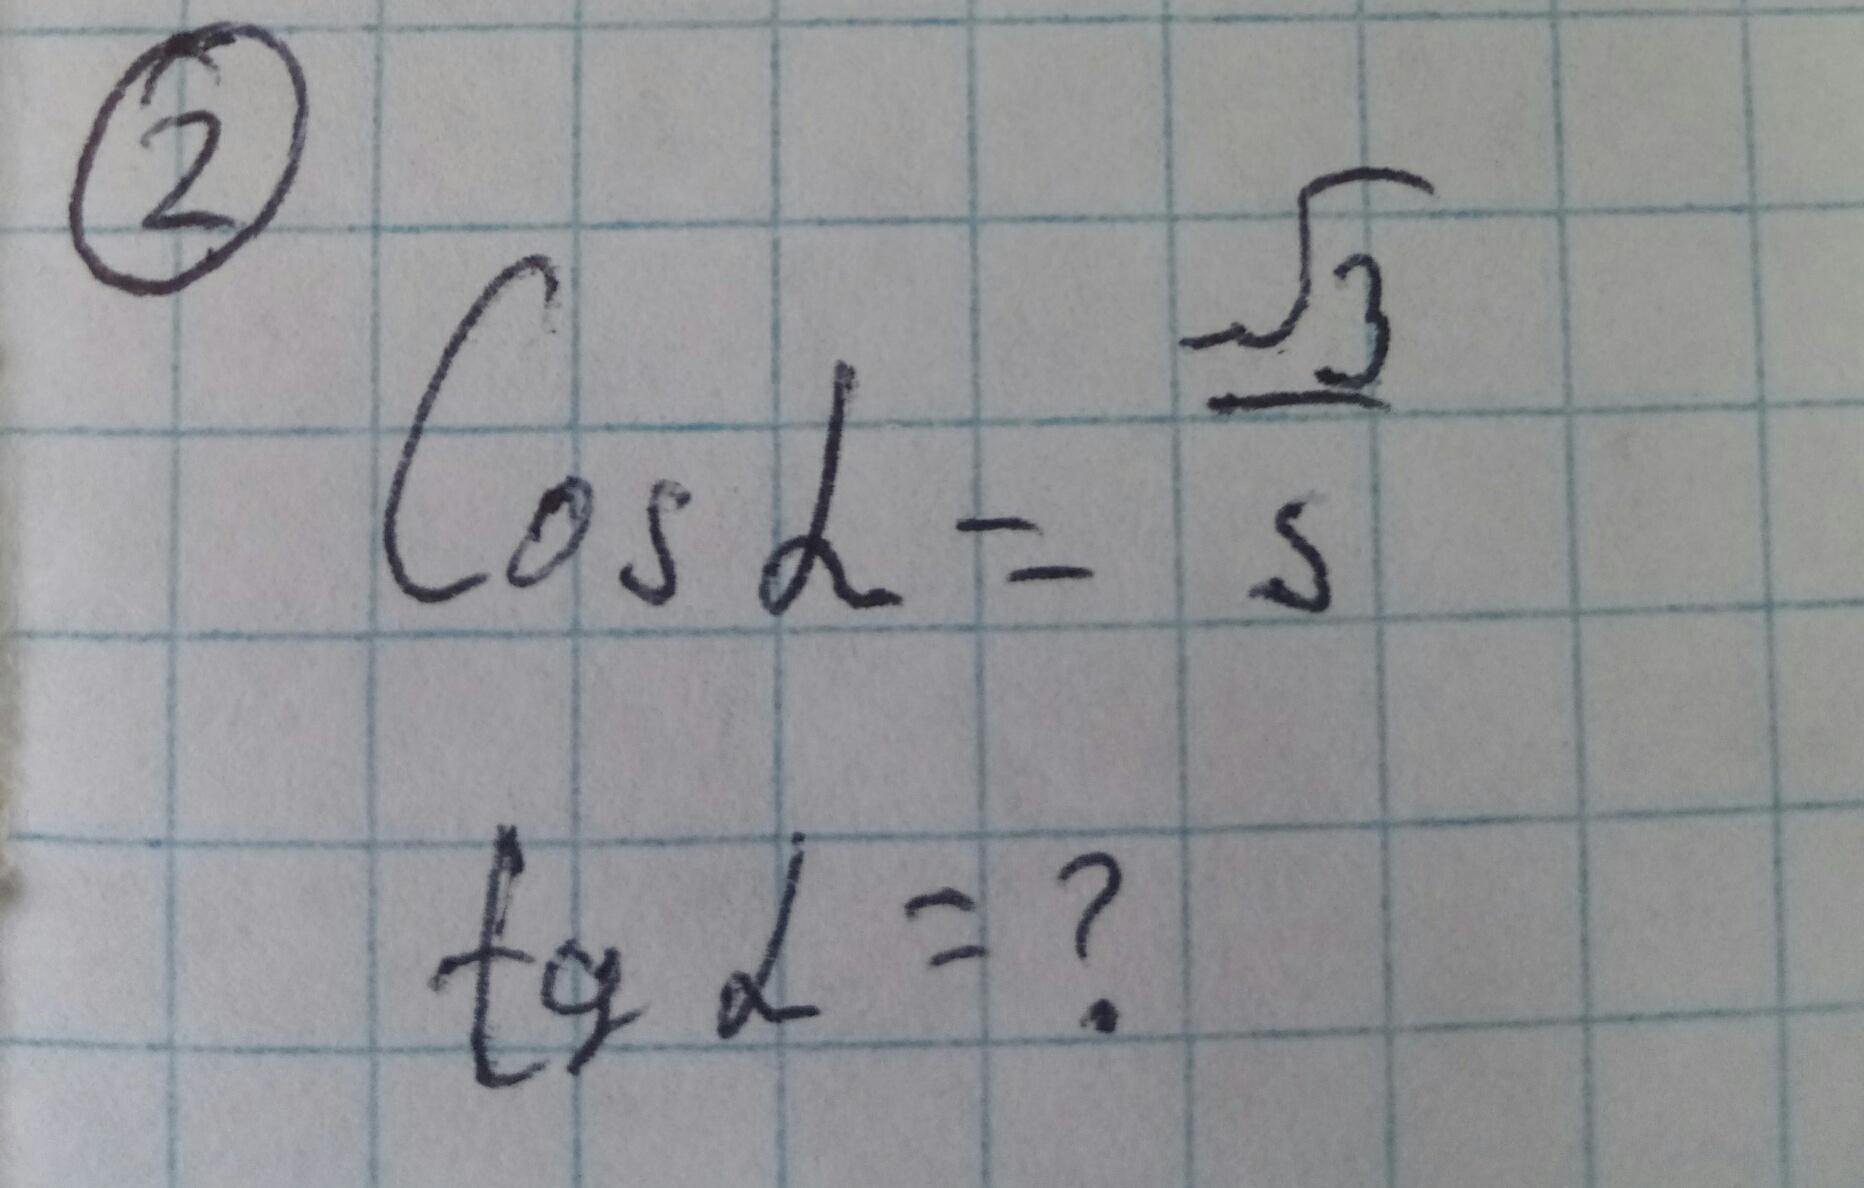 2
Cos α = √3/5
tg α = ?